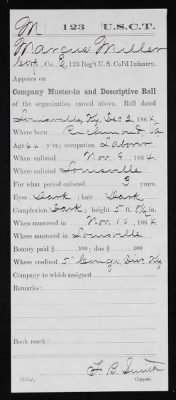 M 123 U.S.C.T.
Marcus Miller
Co. E, 123 Reg't U. S. Col'd Infantry.
Appears on
Company Muster-in and Descriptive Roll
of the organization named above. Roll dated
Louisville, Ky, Dec 2, 1864
Where born Richmond Va
Age 44 y'rs; occupation Labor
When enlisted Nov. 9, 1864.
Where enlisted Louisville
For what period enlisted 3 years.
Eyes Dark; hair Dark
Complexion Dark; height 5 ft. 8½ in.
When mustered in Nov. 10, 1864
Where mustered in Louisville
Bounty paid $ 100; due $ 100
Where credited 5" Dist Ky
Company to which assigned
Remarks:
Book mark:
F. B. Smith
Copyist.